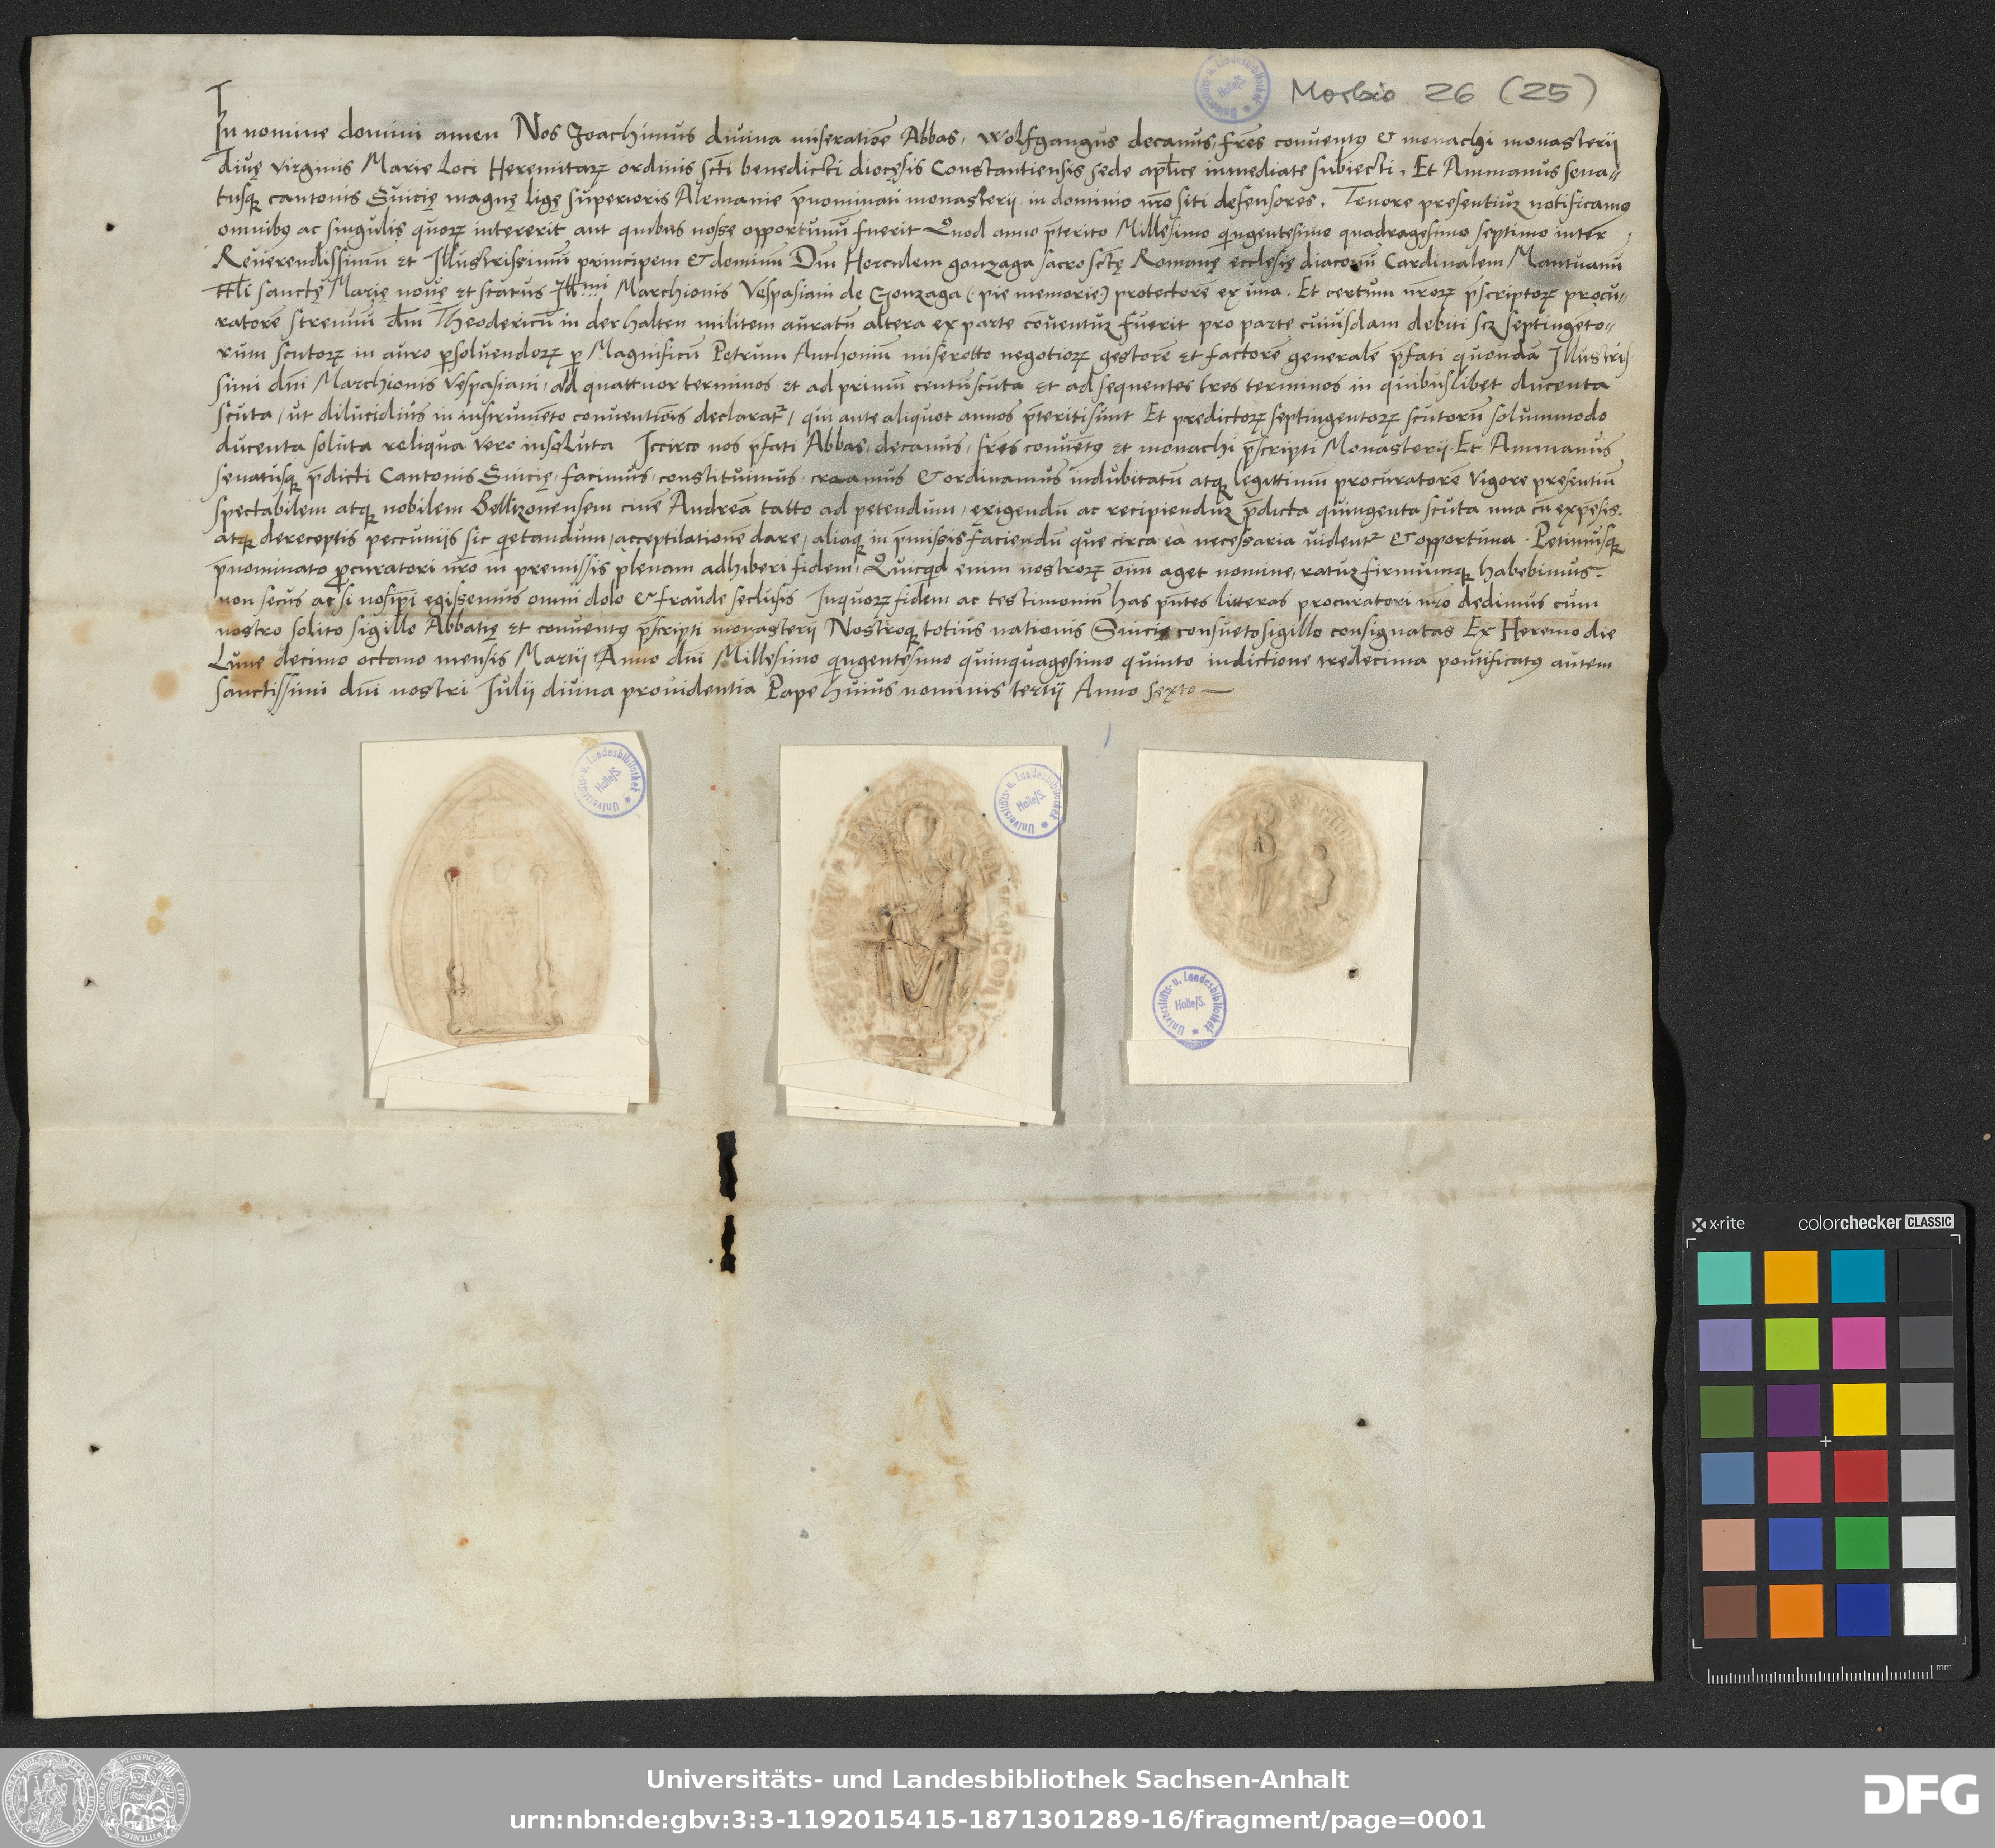 Morbio 26 (25)
In nomine domini amen Nos Joachimus diuina miseratiōe Abbas, Wolfgangus decanus, fr̄es conuentꝰ & monachi monasterij
diuę virginis Marie Loci Heremitarꝝ ordinis sc̄ti benedicti diocęsis Constantiensis sede apl̄ice inmediate subiecti, Et Ammanus sena=
tusqꝫ cantonis Suicię magnę ligę superioris Alemanie p̄nominati monasterij in dominio nr̄o siti defensores, Tenore presentiuꝫ notificamꝰ
omnibꝰ ac singulis quorꝝ intererit aut quibus nosse opportunū fuerit Quod anno p̄terito Millesimo qingentesimo quadragesimo septimo inter
Reuerendissimū et Illustrissimū principem & dominum Dn̄m Herculem gonzaga sacro sc̄tę Romanę ecclesię diaconū Cardinalem Mantuanū
ttl̄i sanctę Marię nouę et status Illmi Marchionis Vespasiani de Gonzaga (: pie memorie) protectorē ex una. Et certum nr̄orꝝ p̄scriptorꝝ procu=
ratorē strenuū dn̄m Theodericū in der halten militem auratū altera ex parte cōuentuꝫ fuerit pro parte cuiusdam debiti scꝫ septingēto=
rum scutorꝝ in auro ꝑsoluendorꝝ ꝑ Magnificū Petrum Anthonium miserotto negotiorꝝ gestorē et factorē generalē p̄fati quondā Illustris
simi dn̄i Marchionis Vespasiani, ad quattuor terminos et ad primū centū scuta et ad sequentes tres terminos in quibuslibet ducenta
scuta, ut dilucidius in instrumēto conuentiōis declarat᷑, qui ante aliquot annos p̄teriti sunt Et predictorꝝ septingentorꝝ scutorū solummodo
ducenta soluta reliqua vero insoluta Iccirco nos p̄fati Abbas, decanus, fr̄es conuētꝰ et monachi p̄scripti Monasterij Et Ammanus
senatusqꝫ p̄dicti Cantonis Suicię, facimus, constituimus, creamus & ordinamus indubitatū atqꝫ legittimū procuratorē vigore presentiū
spectabilem atqꝫ nobilem Bellizonensem ciuē Andreā tatto ad petendum, exigendū ac recipienduꝫ p̄dicta quingenta scuta una cū expēsis.
atqꝫ de receptis peccuniis sic qietandum, acceptilationē dare, aliaqꝫ in p̄missis faciendū que circa ea necessaria uident᷑ & opportuna. Petimusqꝫ
p̄nominato ꝓcuratori nr̄o in premissis plenam adhiberi fidem, Quicqid enim nostrorꝝ oīm aget nomine, ratuꝫ firmumqꝫ habebimus.
non secus ac si nosip̄i egissemus omni dolo & fraude seclusis In quorꝝ fidem ac testimoniū has pn̄tes litteras procuratori nr̄o dedimus cum
nostro solito sigillo Abbatię et conuentꝰ p̄scripti monasterij Nostroqꝫ totius nationis Suicię consueto sigillo consignatas Ex Heremo die
Lune decimo octauo mensis Martij Anno dn̄i Millesimo qingentesimo quinquagesimo quinto indictione tredecima pontificatꝰ autem
sanctissimi dn̄i nostri Julij diuina prouidentia Pape huius nominis tertij Anno sexto —
Universitäts- u. Landesbibliothek Halle/S.
Universitäts- u. Landesbibliothek Halle/S.
Universitäts- u. Landesbibliothek Halle/S.
Universitäts- u. Landesbibliothek Halle/S.
x-rite colorchecker CLASSIC
mm
Universitäts- und Landesbibliothek Sachsen-Anhalt
urn:nbn:de:gbv:3:3-1192015415-1871301289-16/fragment/page=0001
DFG